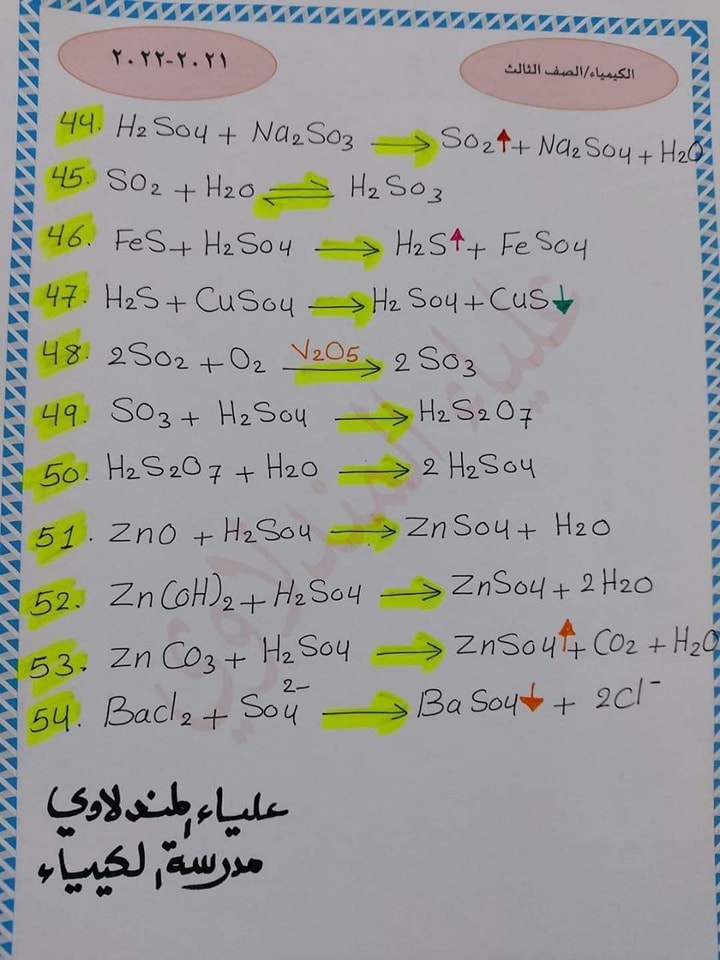 ٢٠٢١-٢٠٢٢
الكيمياء/الصف الثالث
44. H2SO4 + Na2SO3 ⟶ SO2↑ + Na2SO4 + H2O
45. SO2 + H2O ⇌ H2SO3
46. FeS + H2SO4 ⟶ H2S↑ + FeSO4
47. H2S + CuSO4 ⟶ H2SO4 + CuS↓
48. 2SO2 + O2 V2O5⟶ 2SO3
49. SO3 + H2SO4 ⟶ H2S2O7
50. H2S2O7 + H2O ⟶ 2H2SO4
51. ZnO + H2SO4 ⟶ ZnSO4 + H2O
52. Zn(OH)2 + H2SO4 ⟶ ZnSO4 + 2H2O
53. ZnCO3 + H2SO4 ⟶ ZnSO4↑ + CO2 + H2O
54. Bacl2 + SO4 2- ⟶ BaSO4↓ + 2Cl-
علياء المندلاوي
مدرسة الكيمياء
علياء المندلاوي